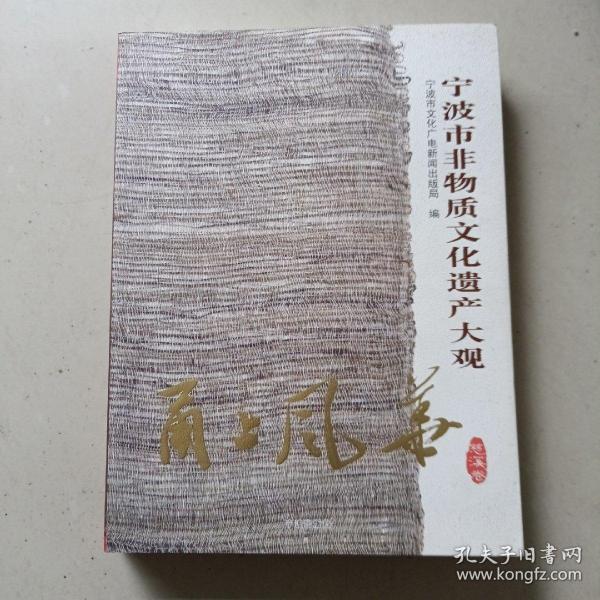 宁波市非物质文化遗产大观
宁波市文化广电新闻出版局 编
甬上风华
慈溪卷
孔夫子旧书网
www.kongfz.com